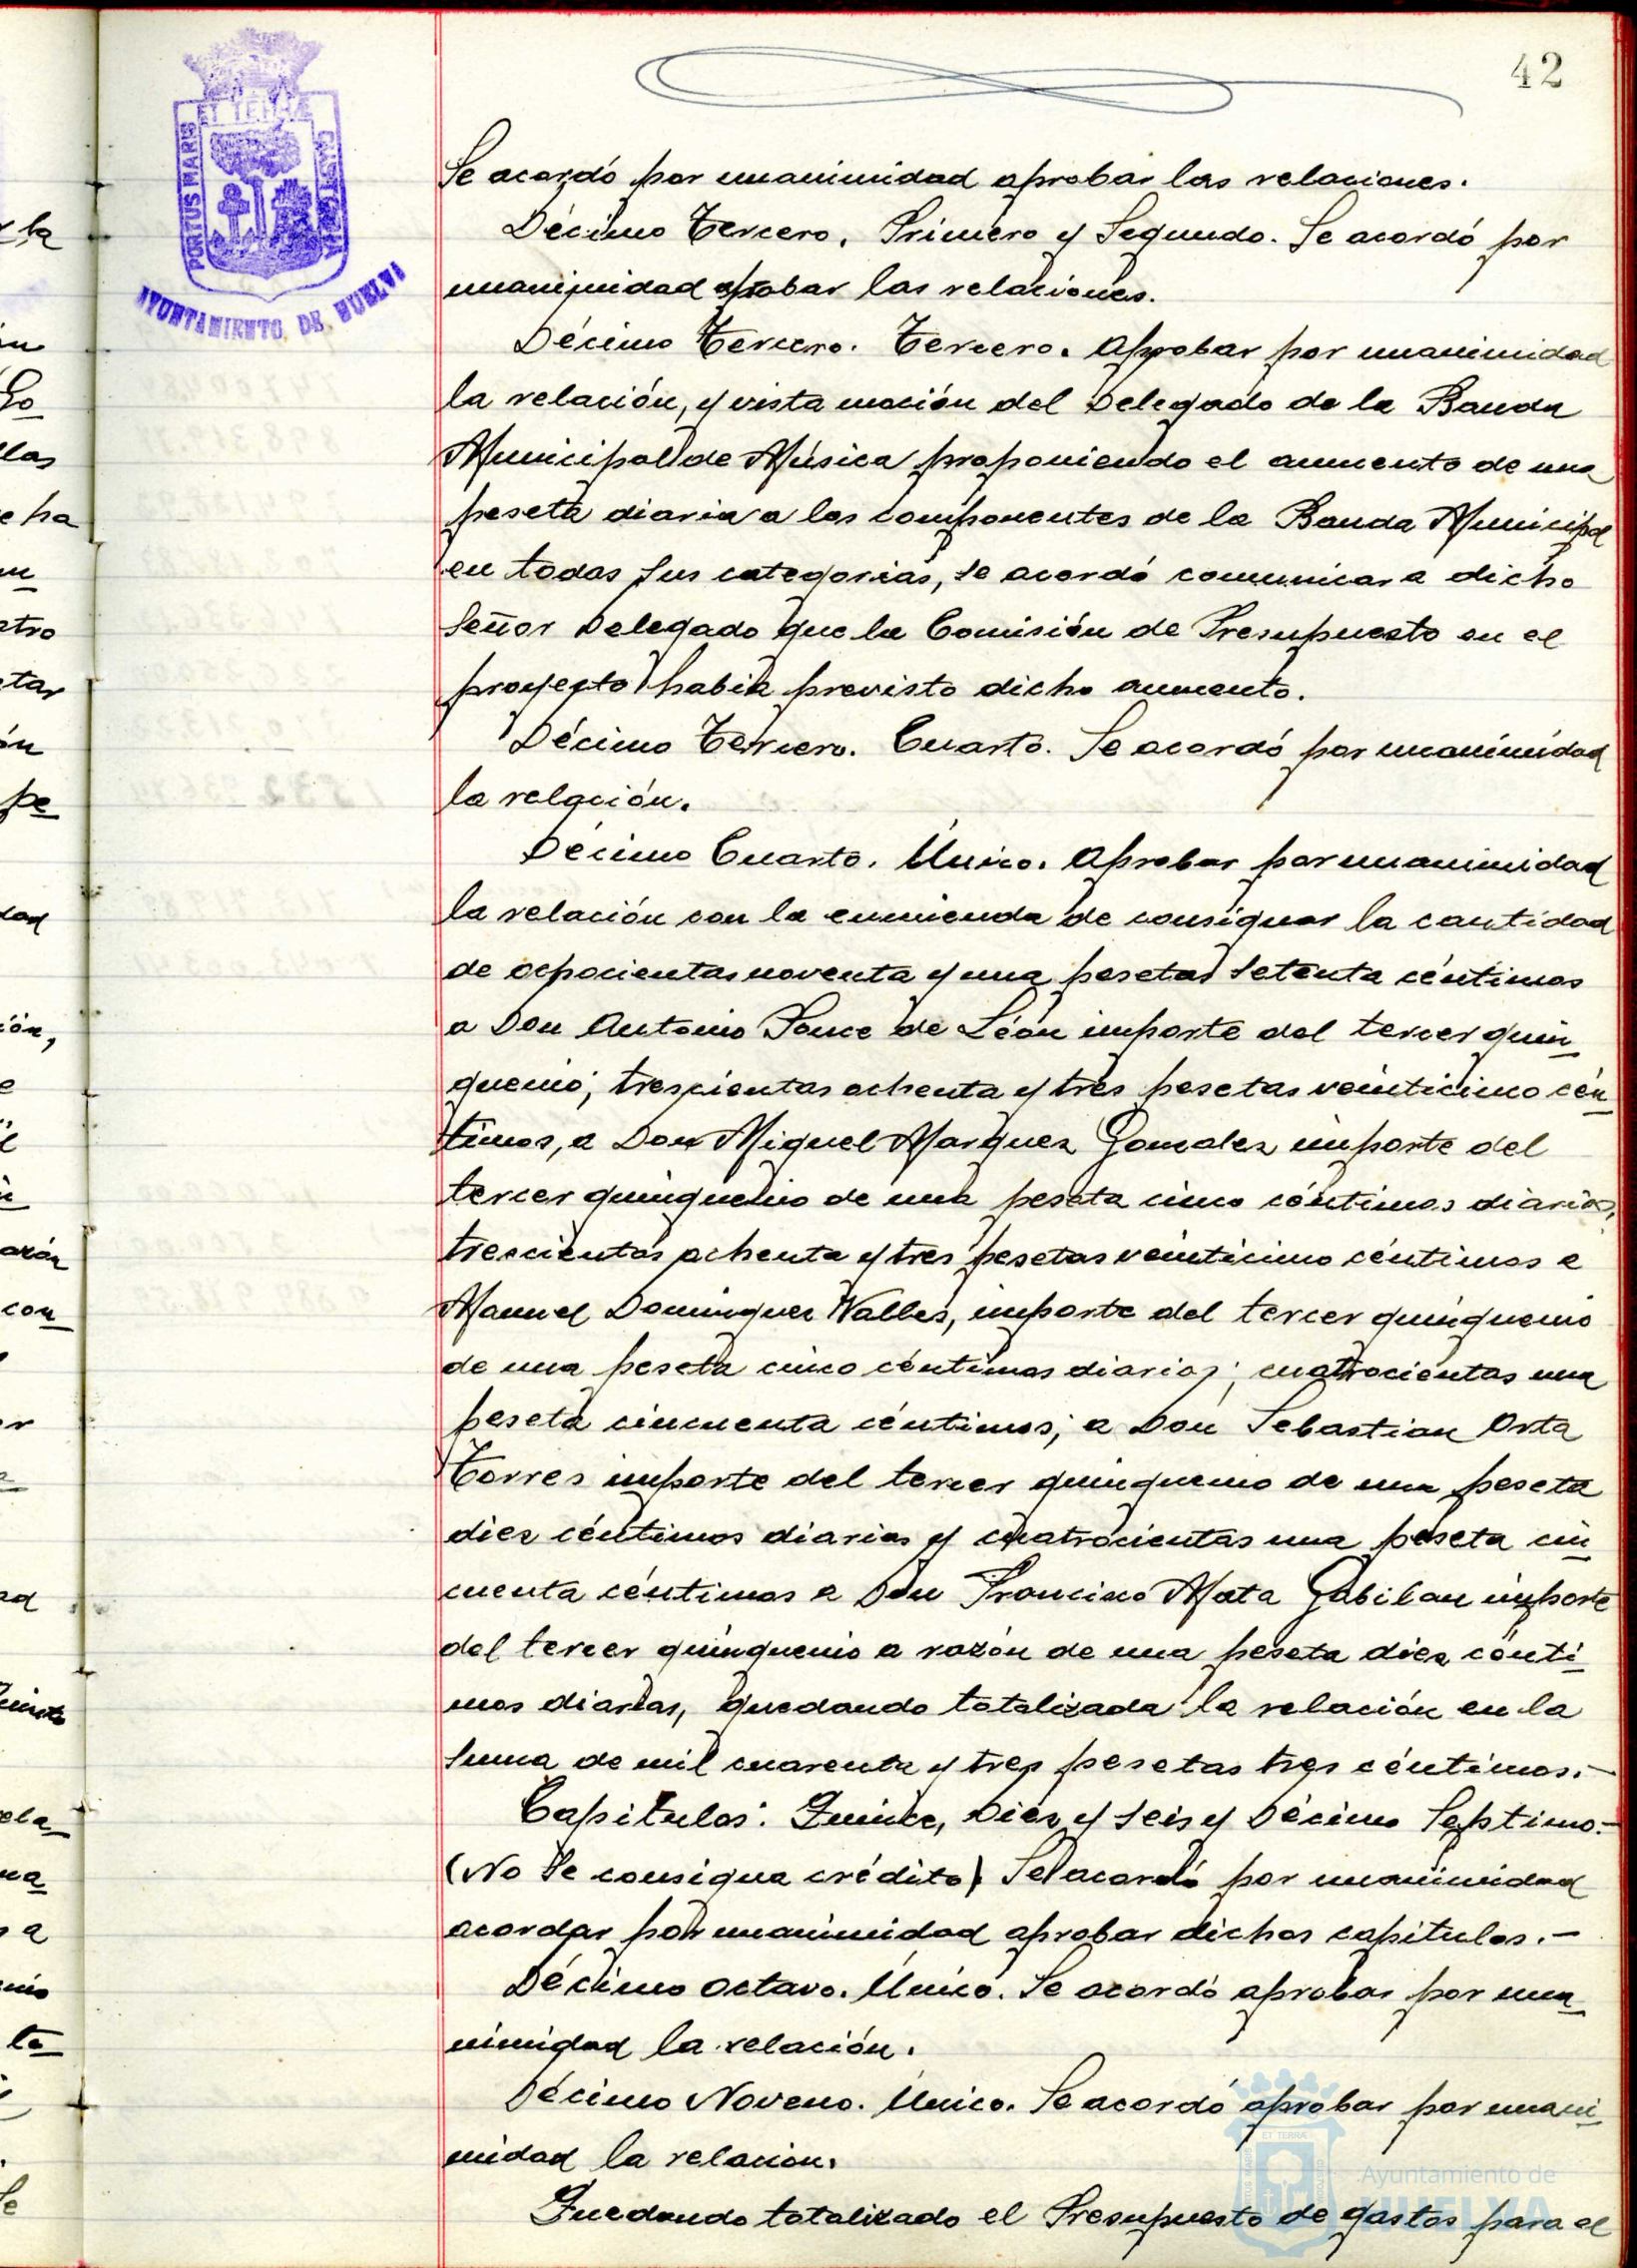 42
PORTUS MARIS
ET TERRÆ
CUSTODIA
AYUNTAMIENTO DE HUELVA
Se acordó por unanimidad aprobar las relaciones.
Décimo Tercero. Primero y Segundo. Se acordó por
unanimidad aprobar las relaciones.
Décimo Tercero. Tercero. Aprobar por unanimidad
la relación, y vista moción del Delegado de la Banda
Municipal de Música proponiendo el aumento de una
peseta diaria a los componentes de la Banda Municipal
en todas sus categorias, se acordó comunicar a dicho
Señor Delegado que la Comisión de Presupuesto en el
proyecto había previsto dicho aumento.
Décimo Tercero. Cuarto. Se acordó por unanimidad
la relación.
Décimo Cuarto. Único. Aprobar por unanimidad
la relación con la enmienda de consignar la cantidad
de ochocientas noventa y una pesetas setenta céntimos
a Don Antonio Ponce de León importe del tercer quin
quenio; trescientas ochenta y tres pesetas veinticinco cén
timos, a Don Miguel Marquez Gonzalez importe del
tercer quinquenio de una peseta cinco céntimos diarios,
trescientas ochenta y tres pesetas veinticinco céntimos a
Manuel Dominguez Valles, importe del tercer quinquenio
de una peseta cinco céntimos diarios; cuatrocientas una
peseta cincuenta céntimos; a Don Sebastian Orta
Torres importe del tercer quinquenio de una peseta
diez céntimos diarios y cuatrocientas una peseta cin
cuenta céntimos a Don Francisco Mata Gabilan importe
del tercer quinquenio a razón de una peseta diez cénti
mos diarias, quedando totalizada la relación en la
suma de mil cuarenta y tres pesetas tres céntimos.-
Capitulos: Quince, Diez y Seis y Décimo Septimo.-
(No se consigna crédito) Se acordó por unanimidad
acordar por unanimidad aprobar dichos capitulos.-
Décimo Octavo. Único. Se acordó aprobar por una
nimidad la relación.
Décimo Noveno. Único. Se acordó aprobar por unani
midad la relacion.
Quedando totalizado el Presupuesto de gastos para el
Ayuntamiento de
HUELVA